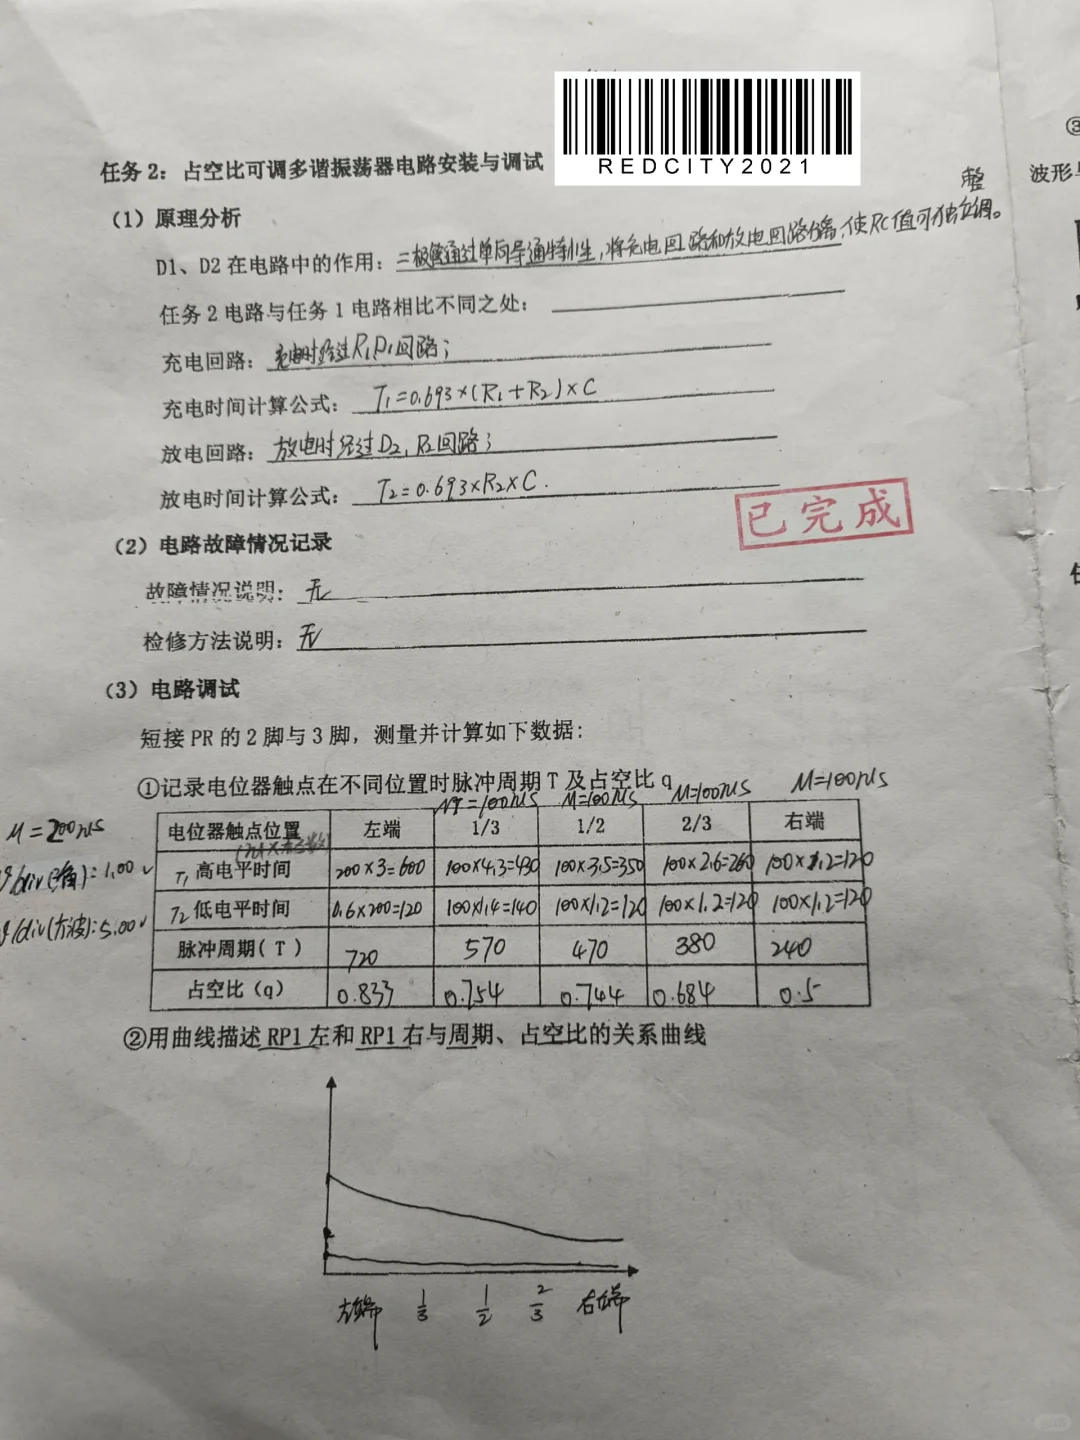 REDCITY2021
③
任务2：占空比可调多谐振荡器电路安装与调试
波形
（1）原理分析
整
D1、D2在电路中的作用：二极管通过单向导通特性，将充电回路和放电回路分离，使RC值可独立调。
任务2电路与任务1电路相比不同之处：
充电回路：充电时经过R₁D₁回路；
充电时间计算公式：T₁=0.693×(R₁+R₂)×C
放电回路：放电时经过D₂,R₂回路；
放电时间计算公式：T₂=0.693×R₂×C.
已完成
（2）电路故障情况记录
故障情况说明：无
检修方法说明：无
（3）电路调试
短接PR的2脚与3脚，测量并计算如下数据：
①记录电位器触点在不同位置时脉冲周期T及占空比q
M=200us =100us M=100us M=100us M=100us
电位器触点位置 左端 1/3 1/2 2/3 右端
v/div(三角):1.00v
T₁高电平时间 200×3=600 100×4.3=430 100×3.5=350 100×2.6=260 100×1.2=120
v/div(方波):5.00v
T₂低电平时间 0.6×200=120 100×1.4=140 100×1.2=120 100×1.2=120 100×1.2=120
脉冲周期(T) 720 570 470 380 240
占空比(q) 0.833 0.754 0.744 0.684 0.5
②用曲线描述RP1左和RP1右与周期、占空比的关系曲线
左端 1/3 1/2 2/3 右端